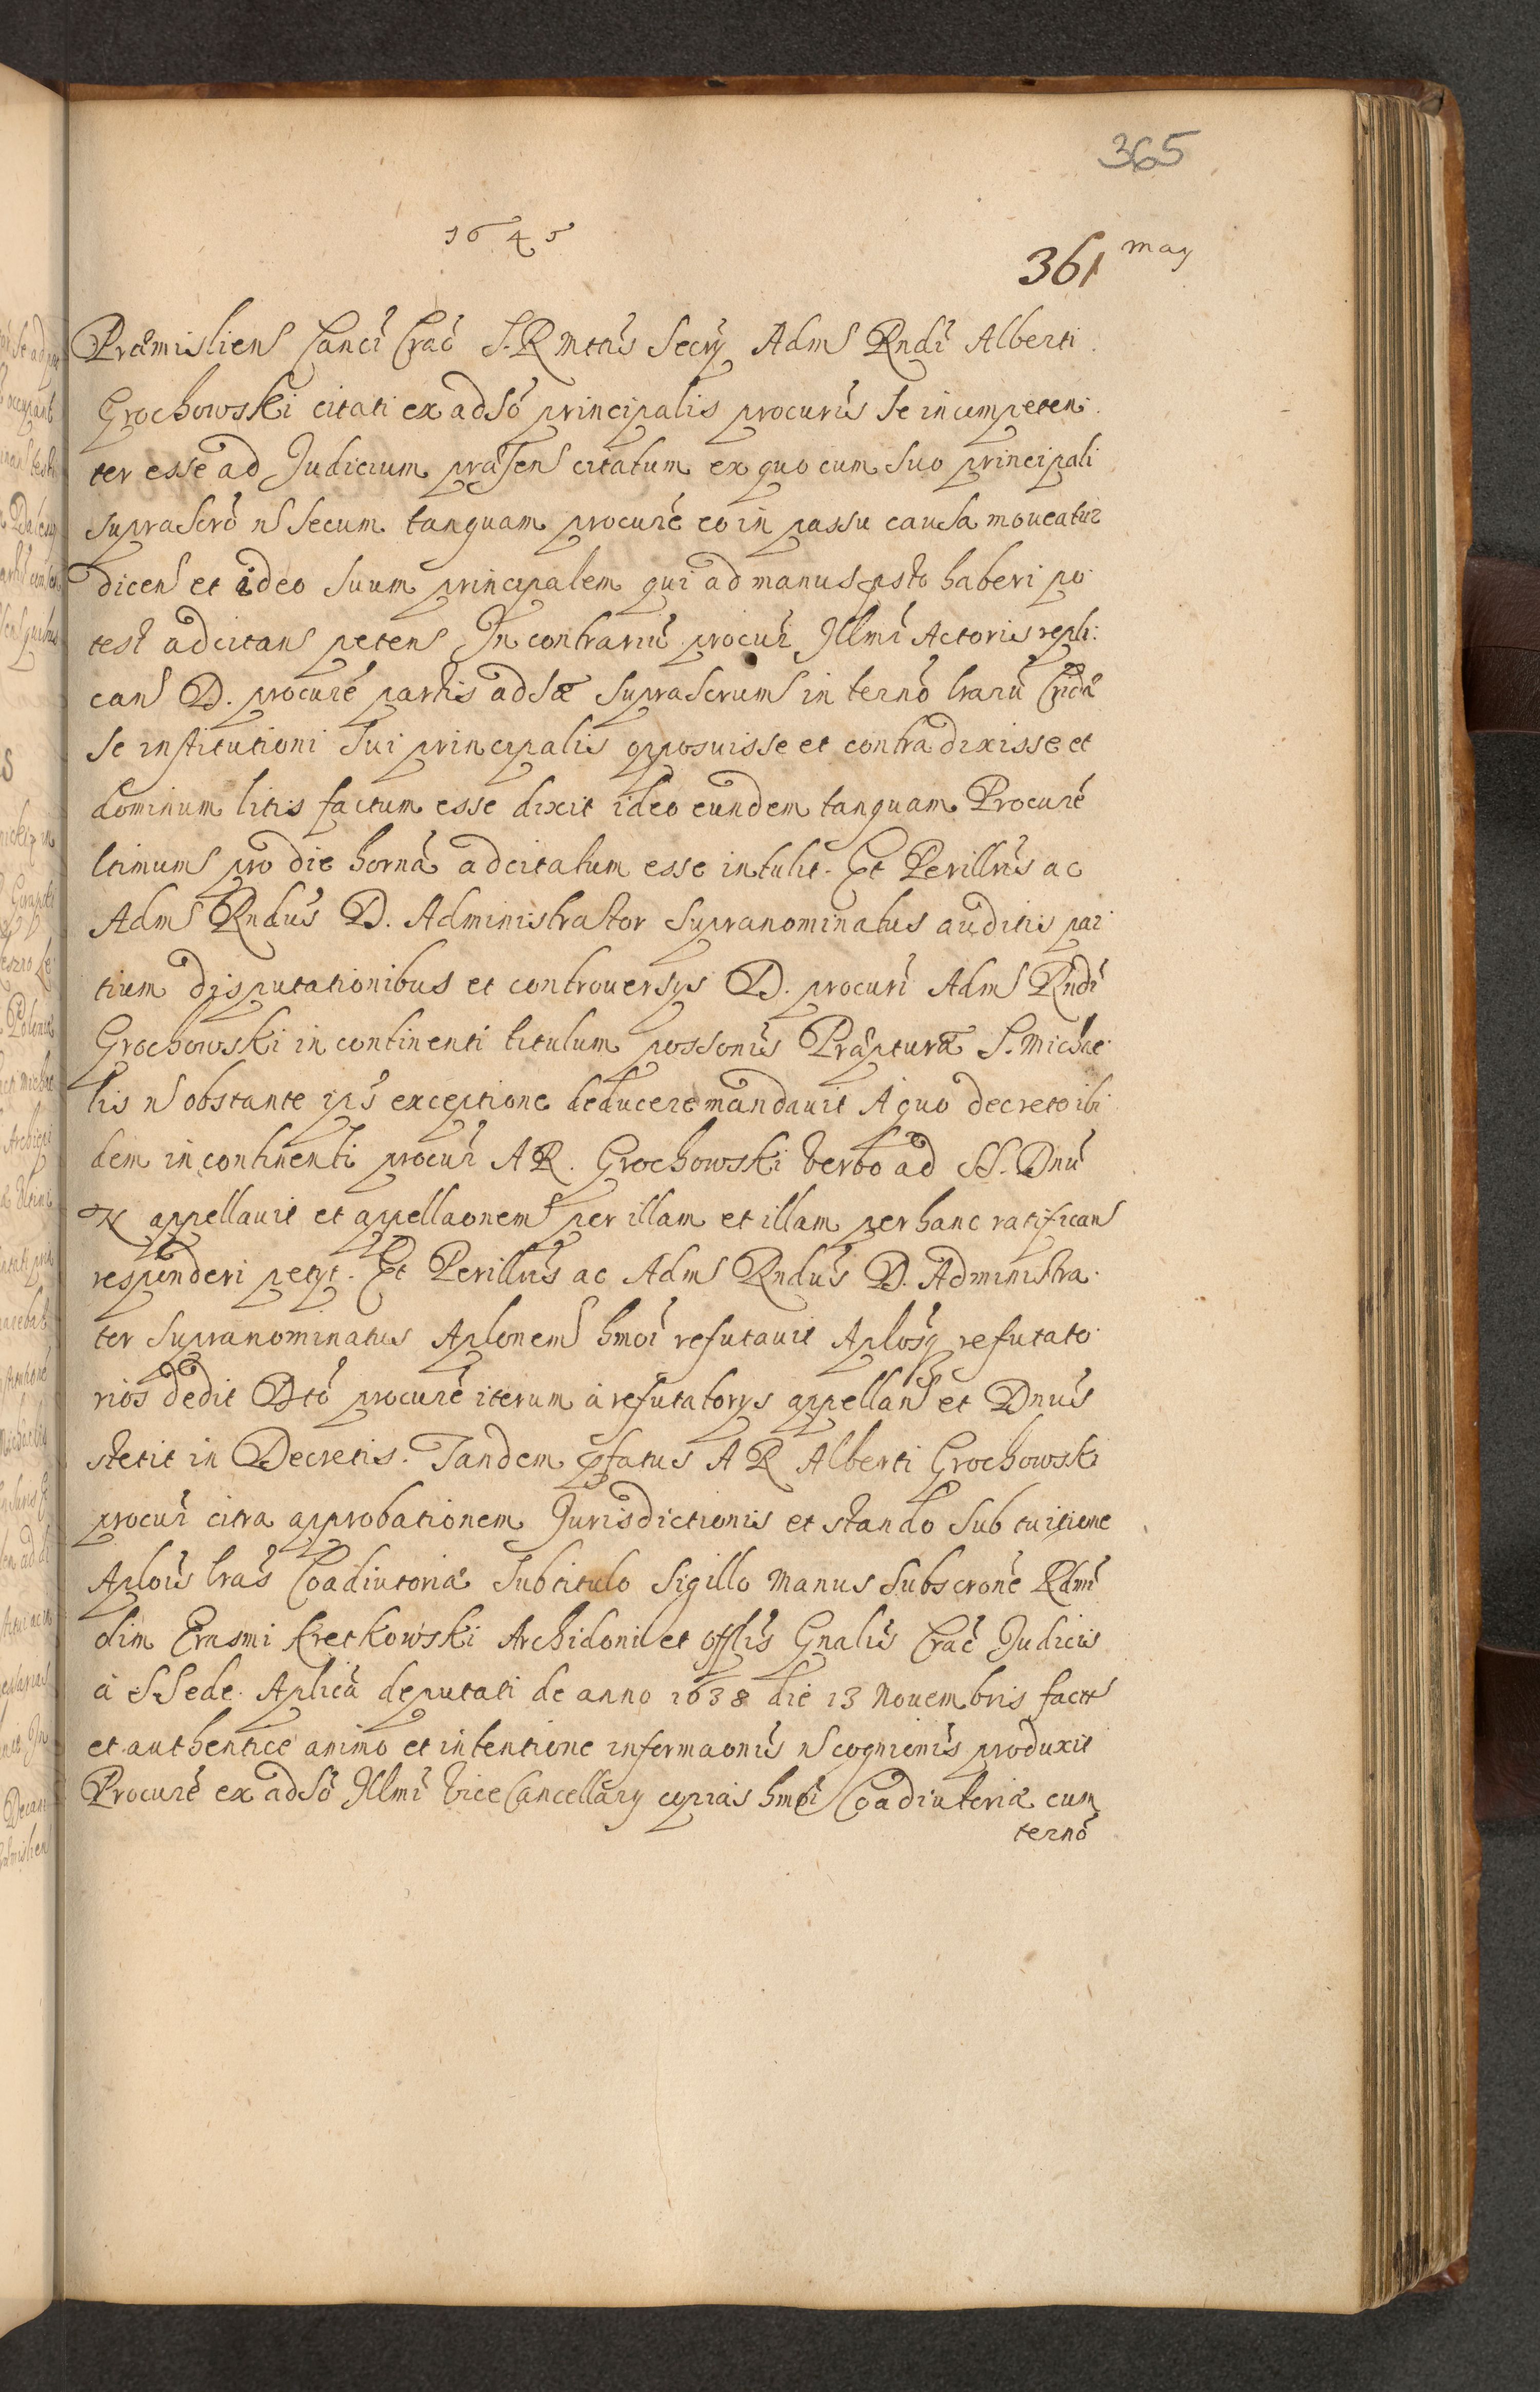 365
1645
361 may
Præmislien Canci Crac S. R. Mttis Secrij Adm Rndi Alberti
Grochowski citati ex adso principalis procuris se incompeten
ter esse ad Judicium præsens citatum ex quo cum suo principali
suprascro n secum tanquam procure eo in passu causa moveatur
dicens et ideo suum principalem qui ad manus psto haberi po
test adcitans petens In contrariu procur Illmi Actoris repli
cans D. procure partis adsæ suprascrum in termo lraru Cridæ
se institutioni sui principalis opposuisse et contradixisse et
dominum litis factum esse dixit ideo eundem tanquam Procure
ltimum pro die horna adcitatum esse intulit. Et Perillris ac
Adm Rndus D. Administrator supranominatus auditis par
tium disputationibus et controversys D. procuri Adm Rndi
Grochowski in continenti titulum possonis Præpturæ S. Michae
lis n obstante ips exceptione deducere mandavit A quo decreto ibi
dem in continenti procur A R. Grochowski verbo ad SS. Dnu
N appellavit et appellaonem per illam et illam per hanc ratifican
responderi petyt. Et Perillris ac Adm Rndus D. Administra
tor supranominatus Aplonem hmoi refutavit Aplosq refutato
rios dedit Dto procure iterum à refutatorys appellan et Dnus
stetit in Decretis. Tandem pfatus A R Alberti Grochowski
procur citra approbationem Jurisdictionis et stando sub tuitione
Aplois lras Coadiutoriæ sub titulo sigillo manus subscrone Rdmi
olim Erasmi Kretkowski Archidoni et offlis Gnalis Crac Judicis
à S Sede Aplica deputati de anno 1638 die 13 Novembris factt
et authentice animo et intentione informaonis n cognionis produxit
Procure ex adso Illmi Vice Cancellarij copias hmoi Coadiutoriæ cum
termo